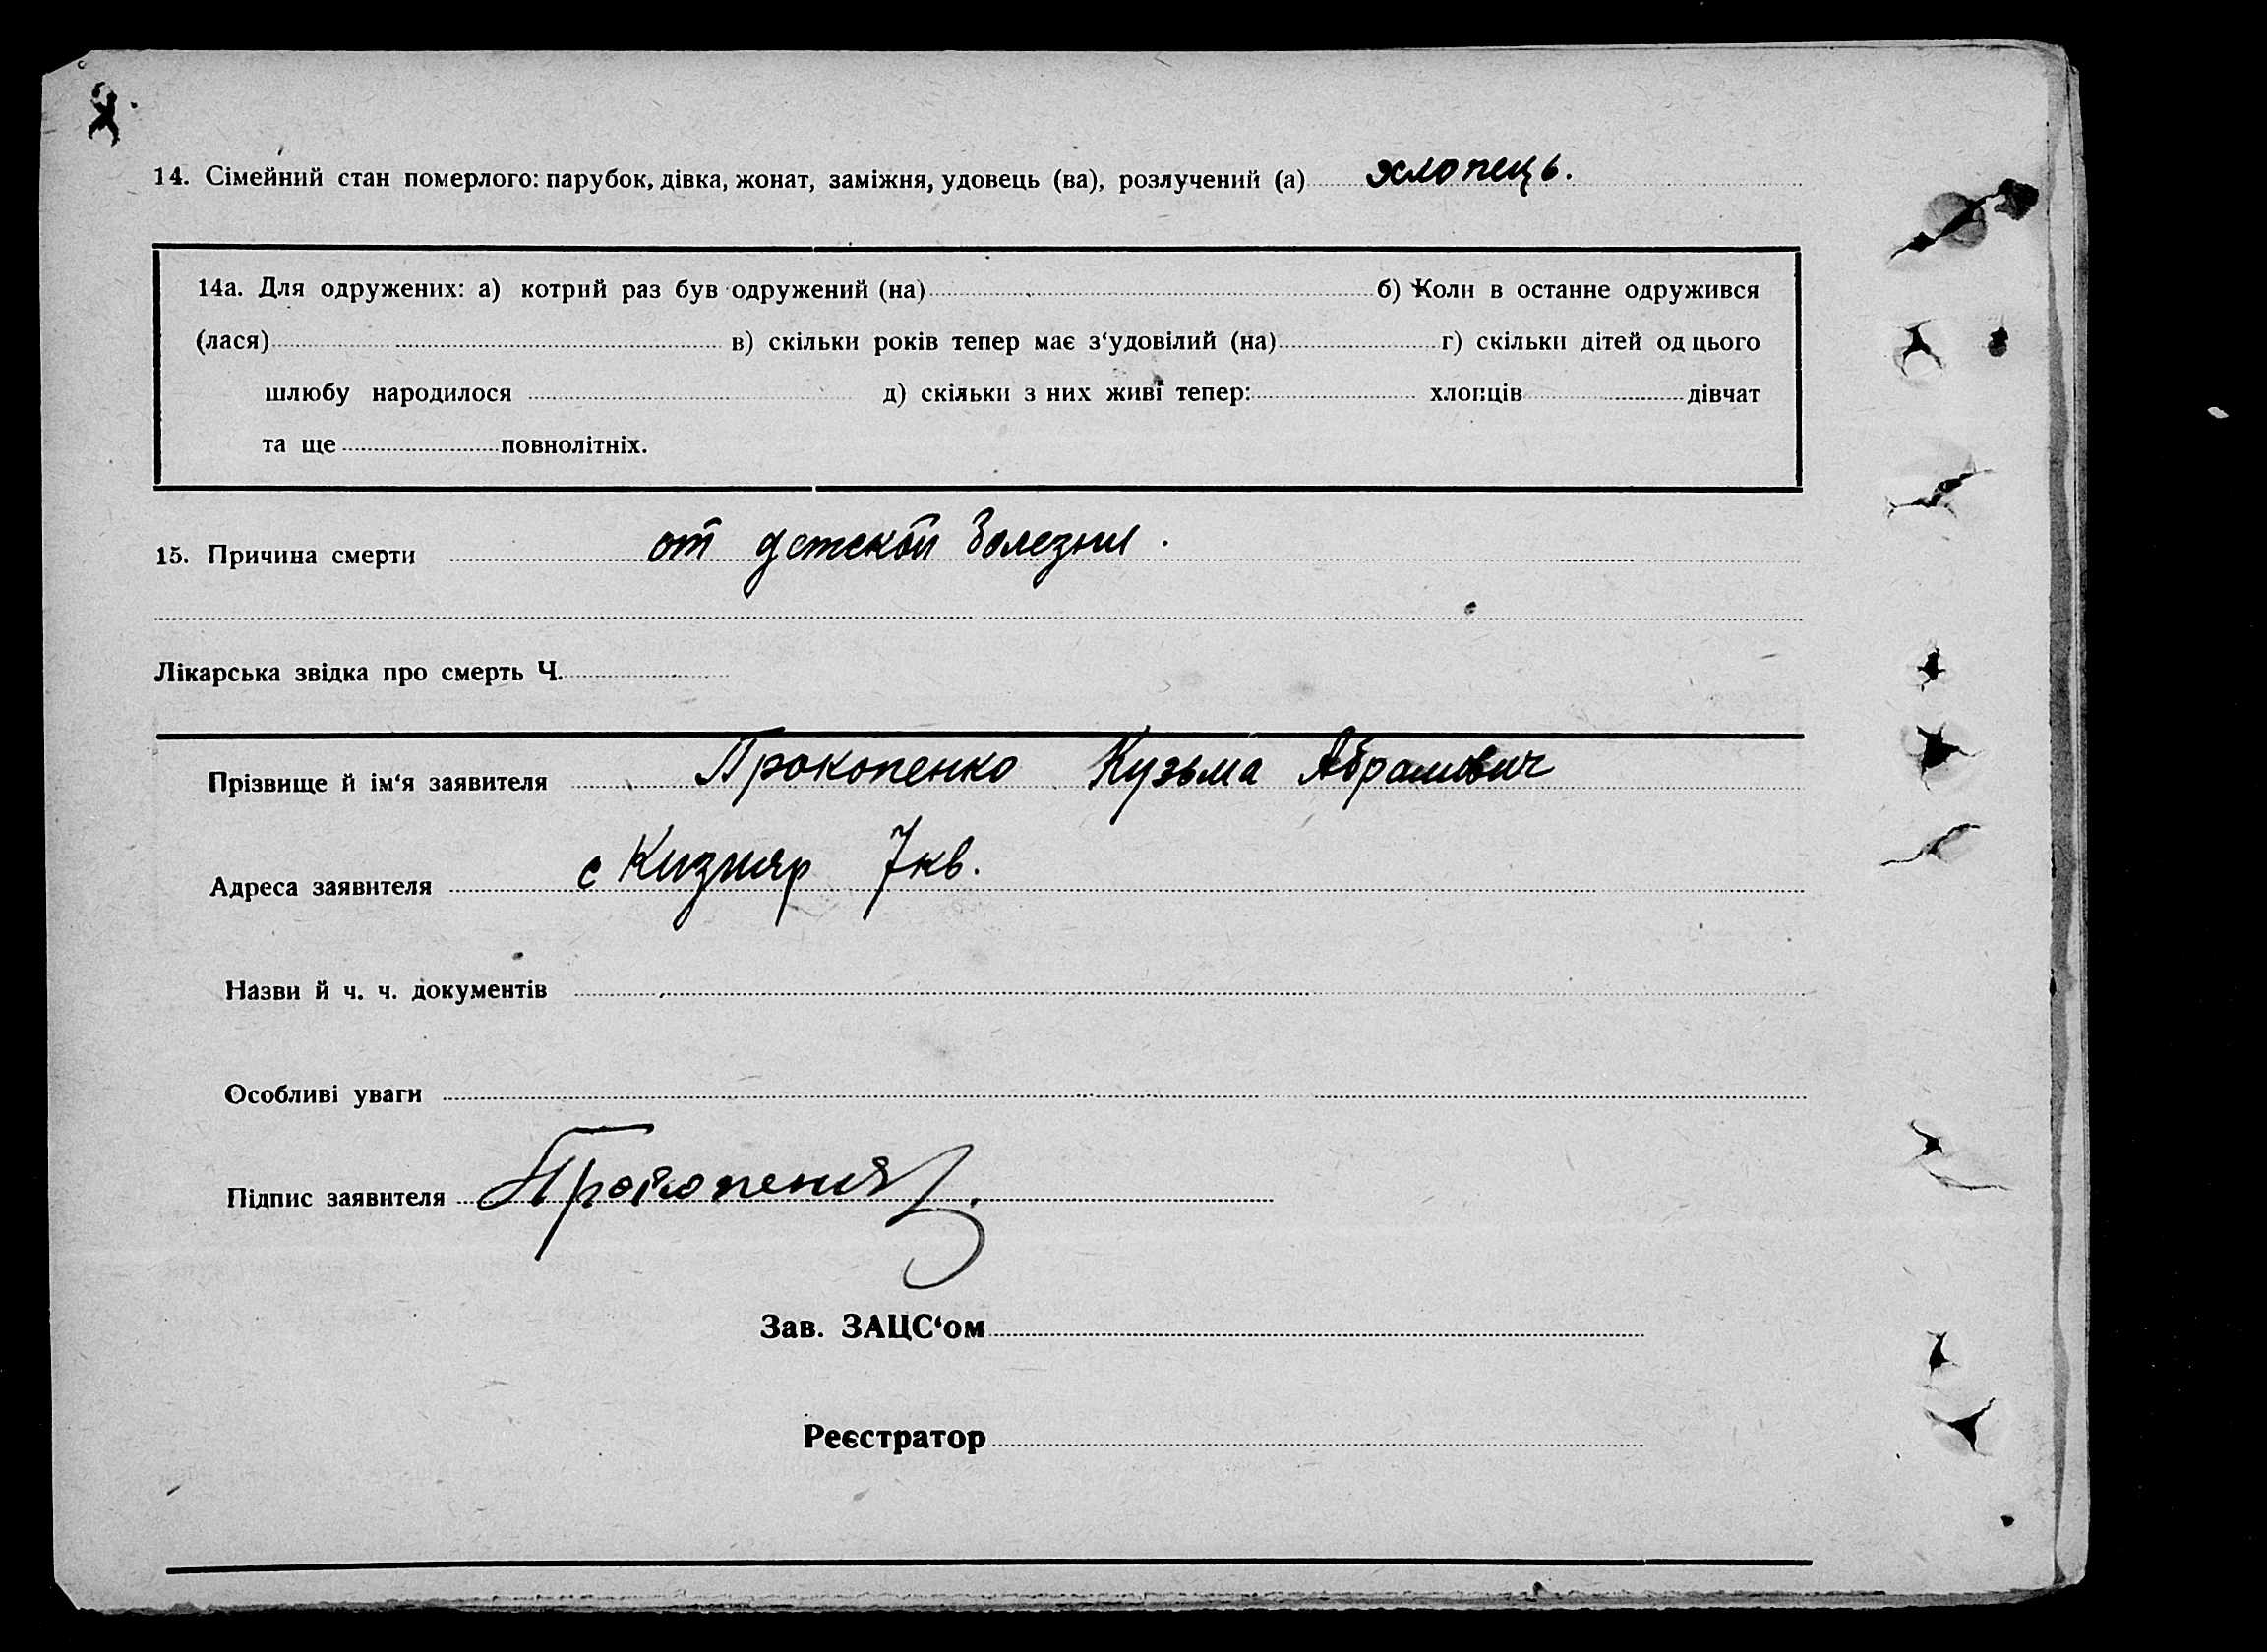 14. Сімейний стан померлого: парубок, дівка, жонат, заміжня, удовець (ва), розлучений (а) хлопець.
14а. Для одружених: а) котрий раз був одружений (на) б) Коли в останне одружився
(лася) в) скільки років тепер має з‘удовілий (на) г) скільки дітей од цього
шлюбу народилося д) скільки з них живі тепер: хлопців дівчат
та ще повнолітніх.
15. Причина смерти от детской болезни.
Лікарська звідка про смерть Ч.
Прізвище й ім‘я заявителя Прокопенко Кузьма Абрамович
Адреса заявителя с Кизияр 7 кв.
Назви й ч. ч. документів
Особливі уваги
Підпис заявителя
Зав. ЗАЦС‘ом
Реєстратор